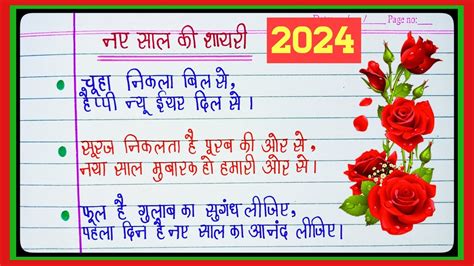 Page no:
नए साल की शायरी
2024
चूहा निकला बिल से,
हैप्पी न्यू ईयर दिल से।
सूरज निकलता है पूरब की ओर से,
नया साल मुबारक हो हमारी ओर से।
फूल है गुलाब का सुगंध लीजिए,
पहला दिन है नए साल का आनंद लीजिए।